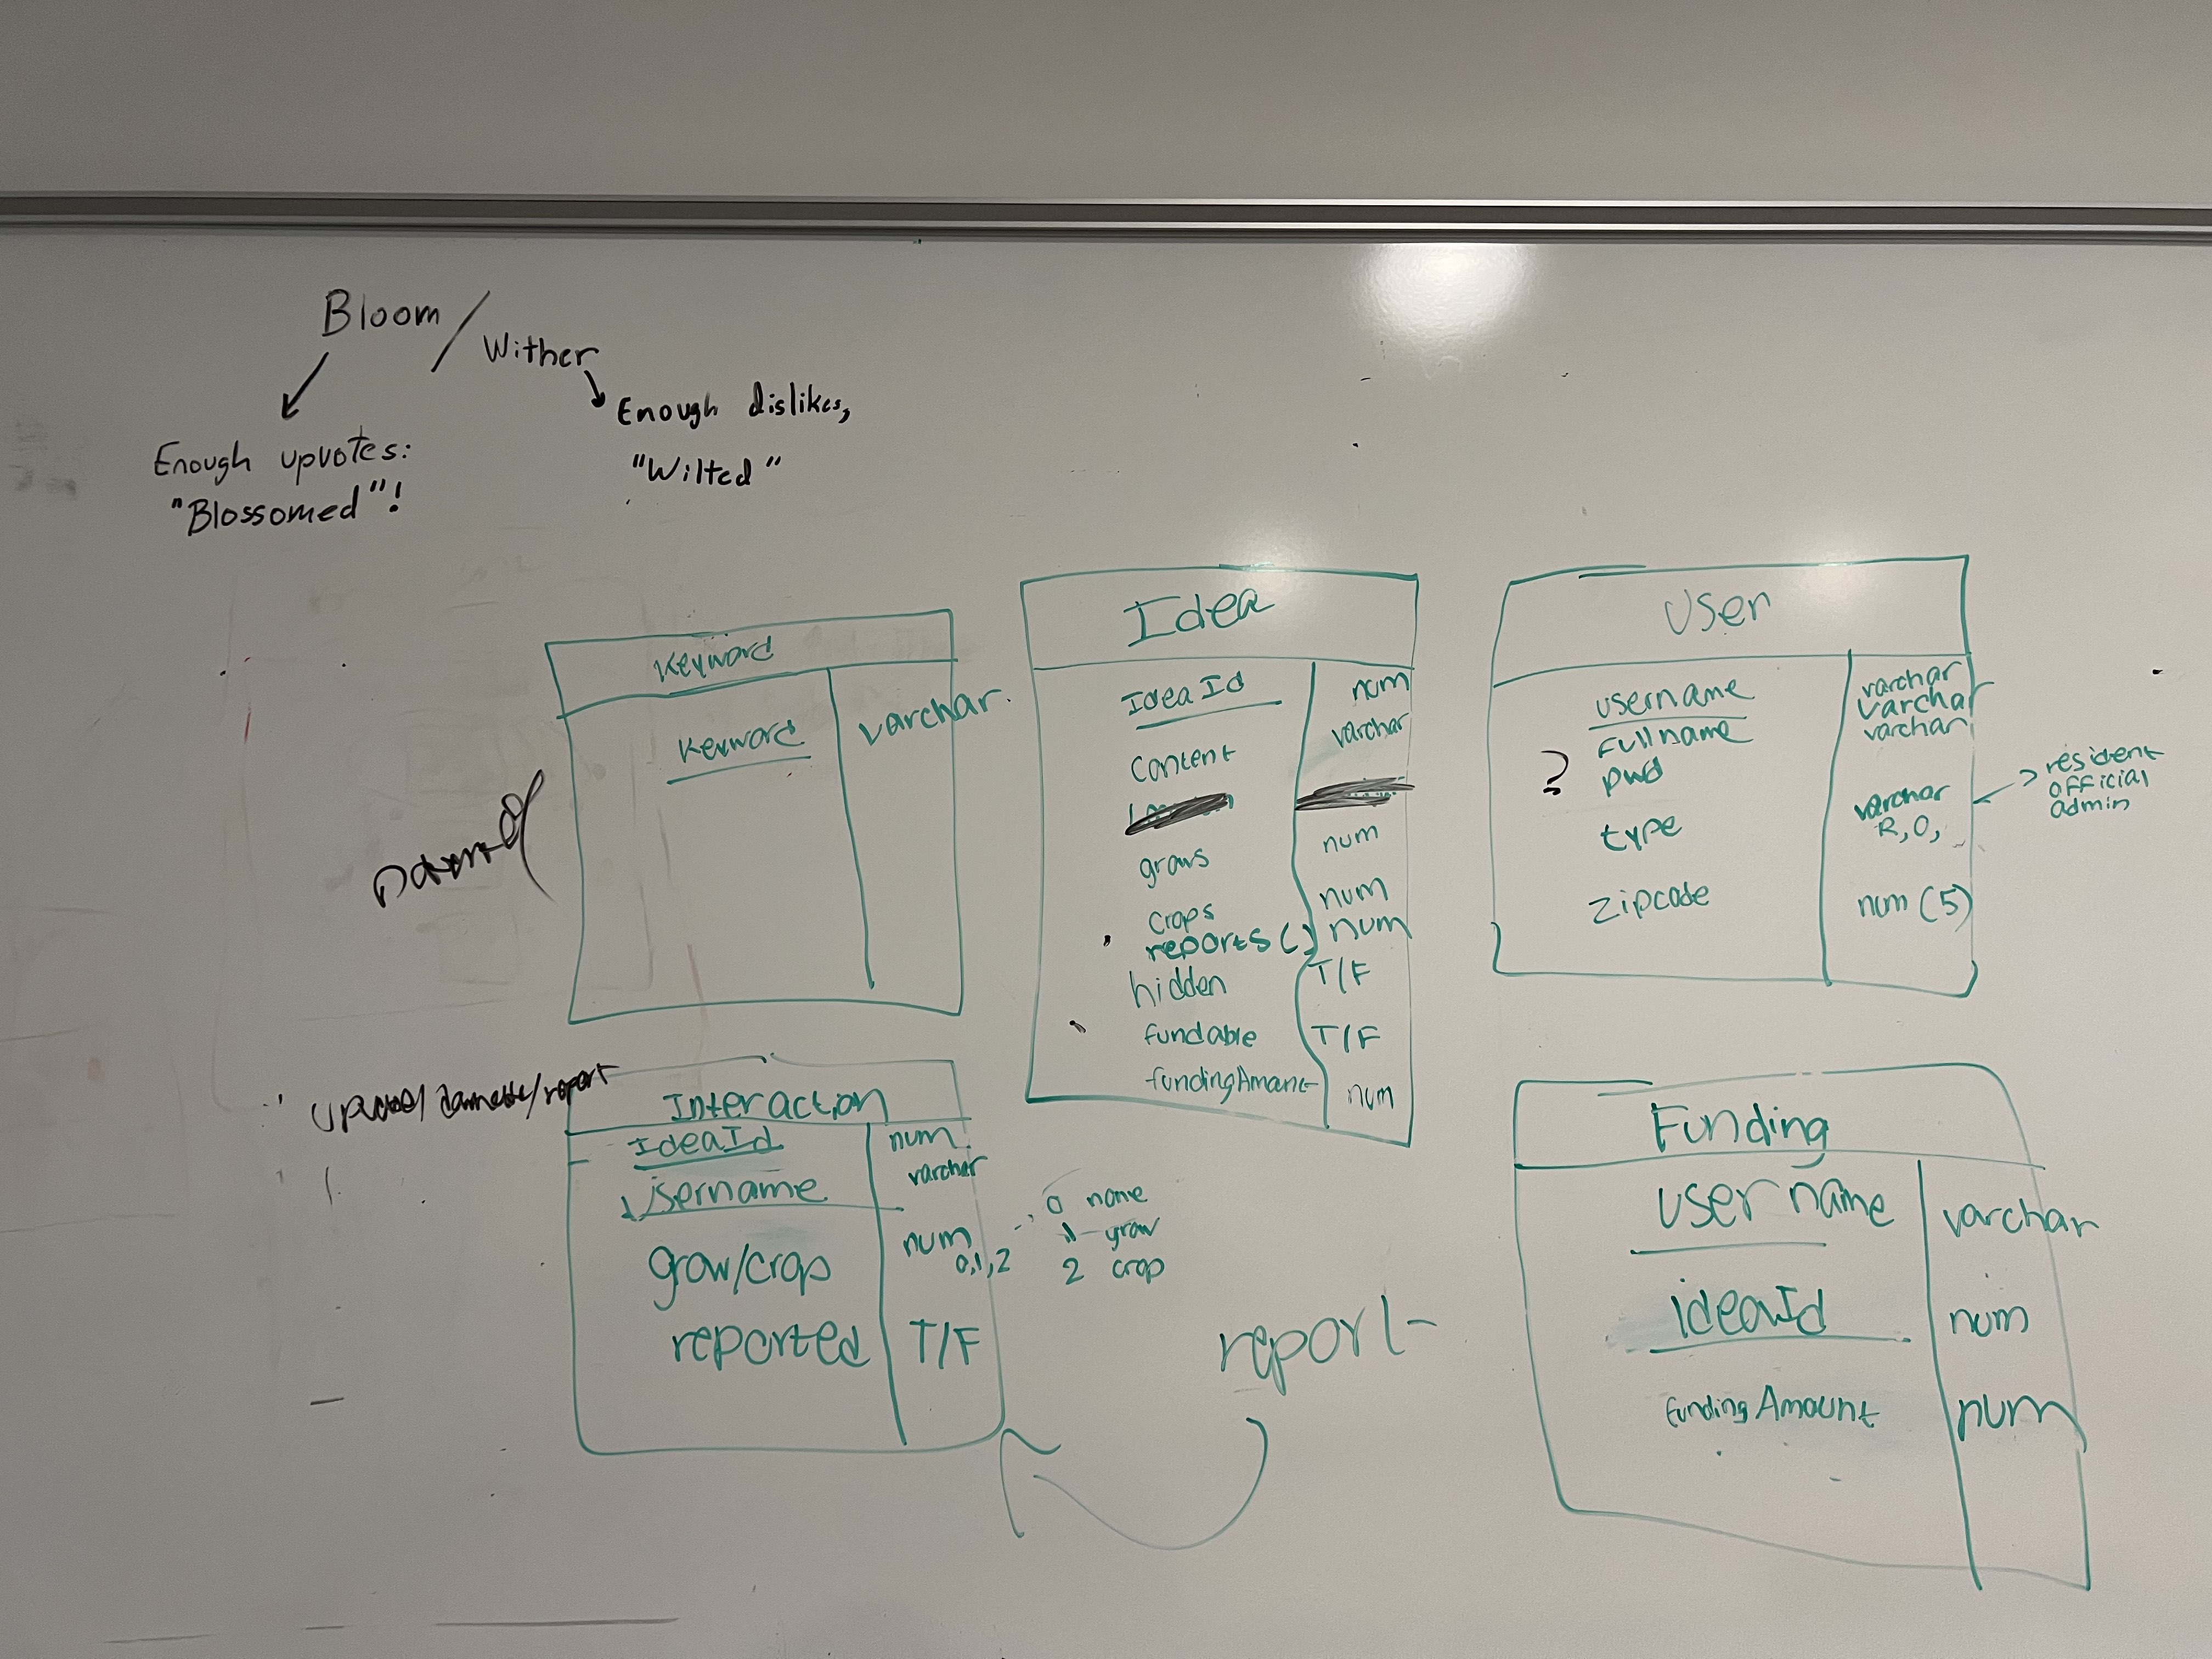 Bloom / Wither
Enough upvotes:
"Blossomed"!
Enough dislikes,
"Wilted"
Keyword
Keyword varchar.
Idea
IdeaId num
content varchar
grows num
crops num
reports() num
hidden T/F
fundable T/F
fundingAmount num
User
username varchar
fullname varchar
? pwd varchar
type varchar
R, O,
resident
official
admin
zipcode num (5)
report
Interaction
IdeaId num
username varchar
grow/crop num
0,1,2
0 none
1 grow
2 crop
reported T/F
report
Funding
username varchar
ideaId num
fundingAmount num